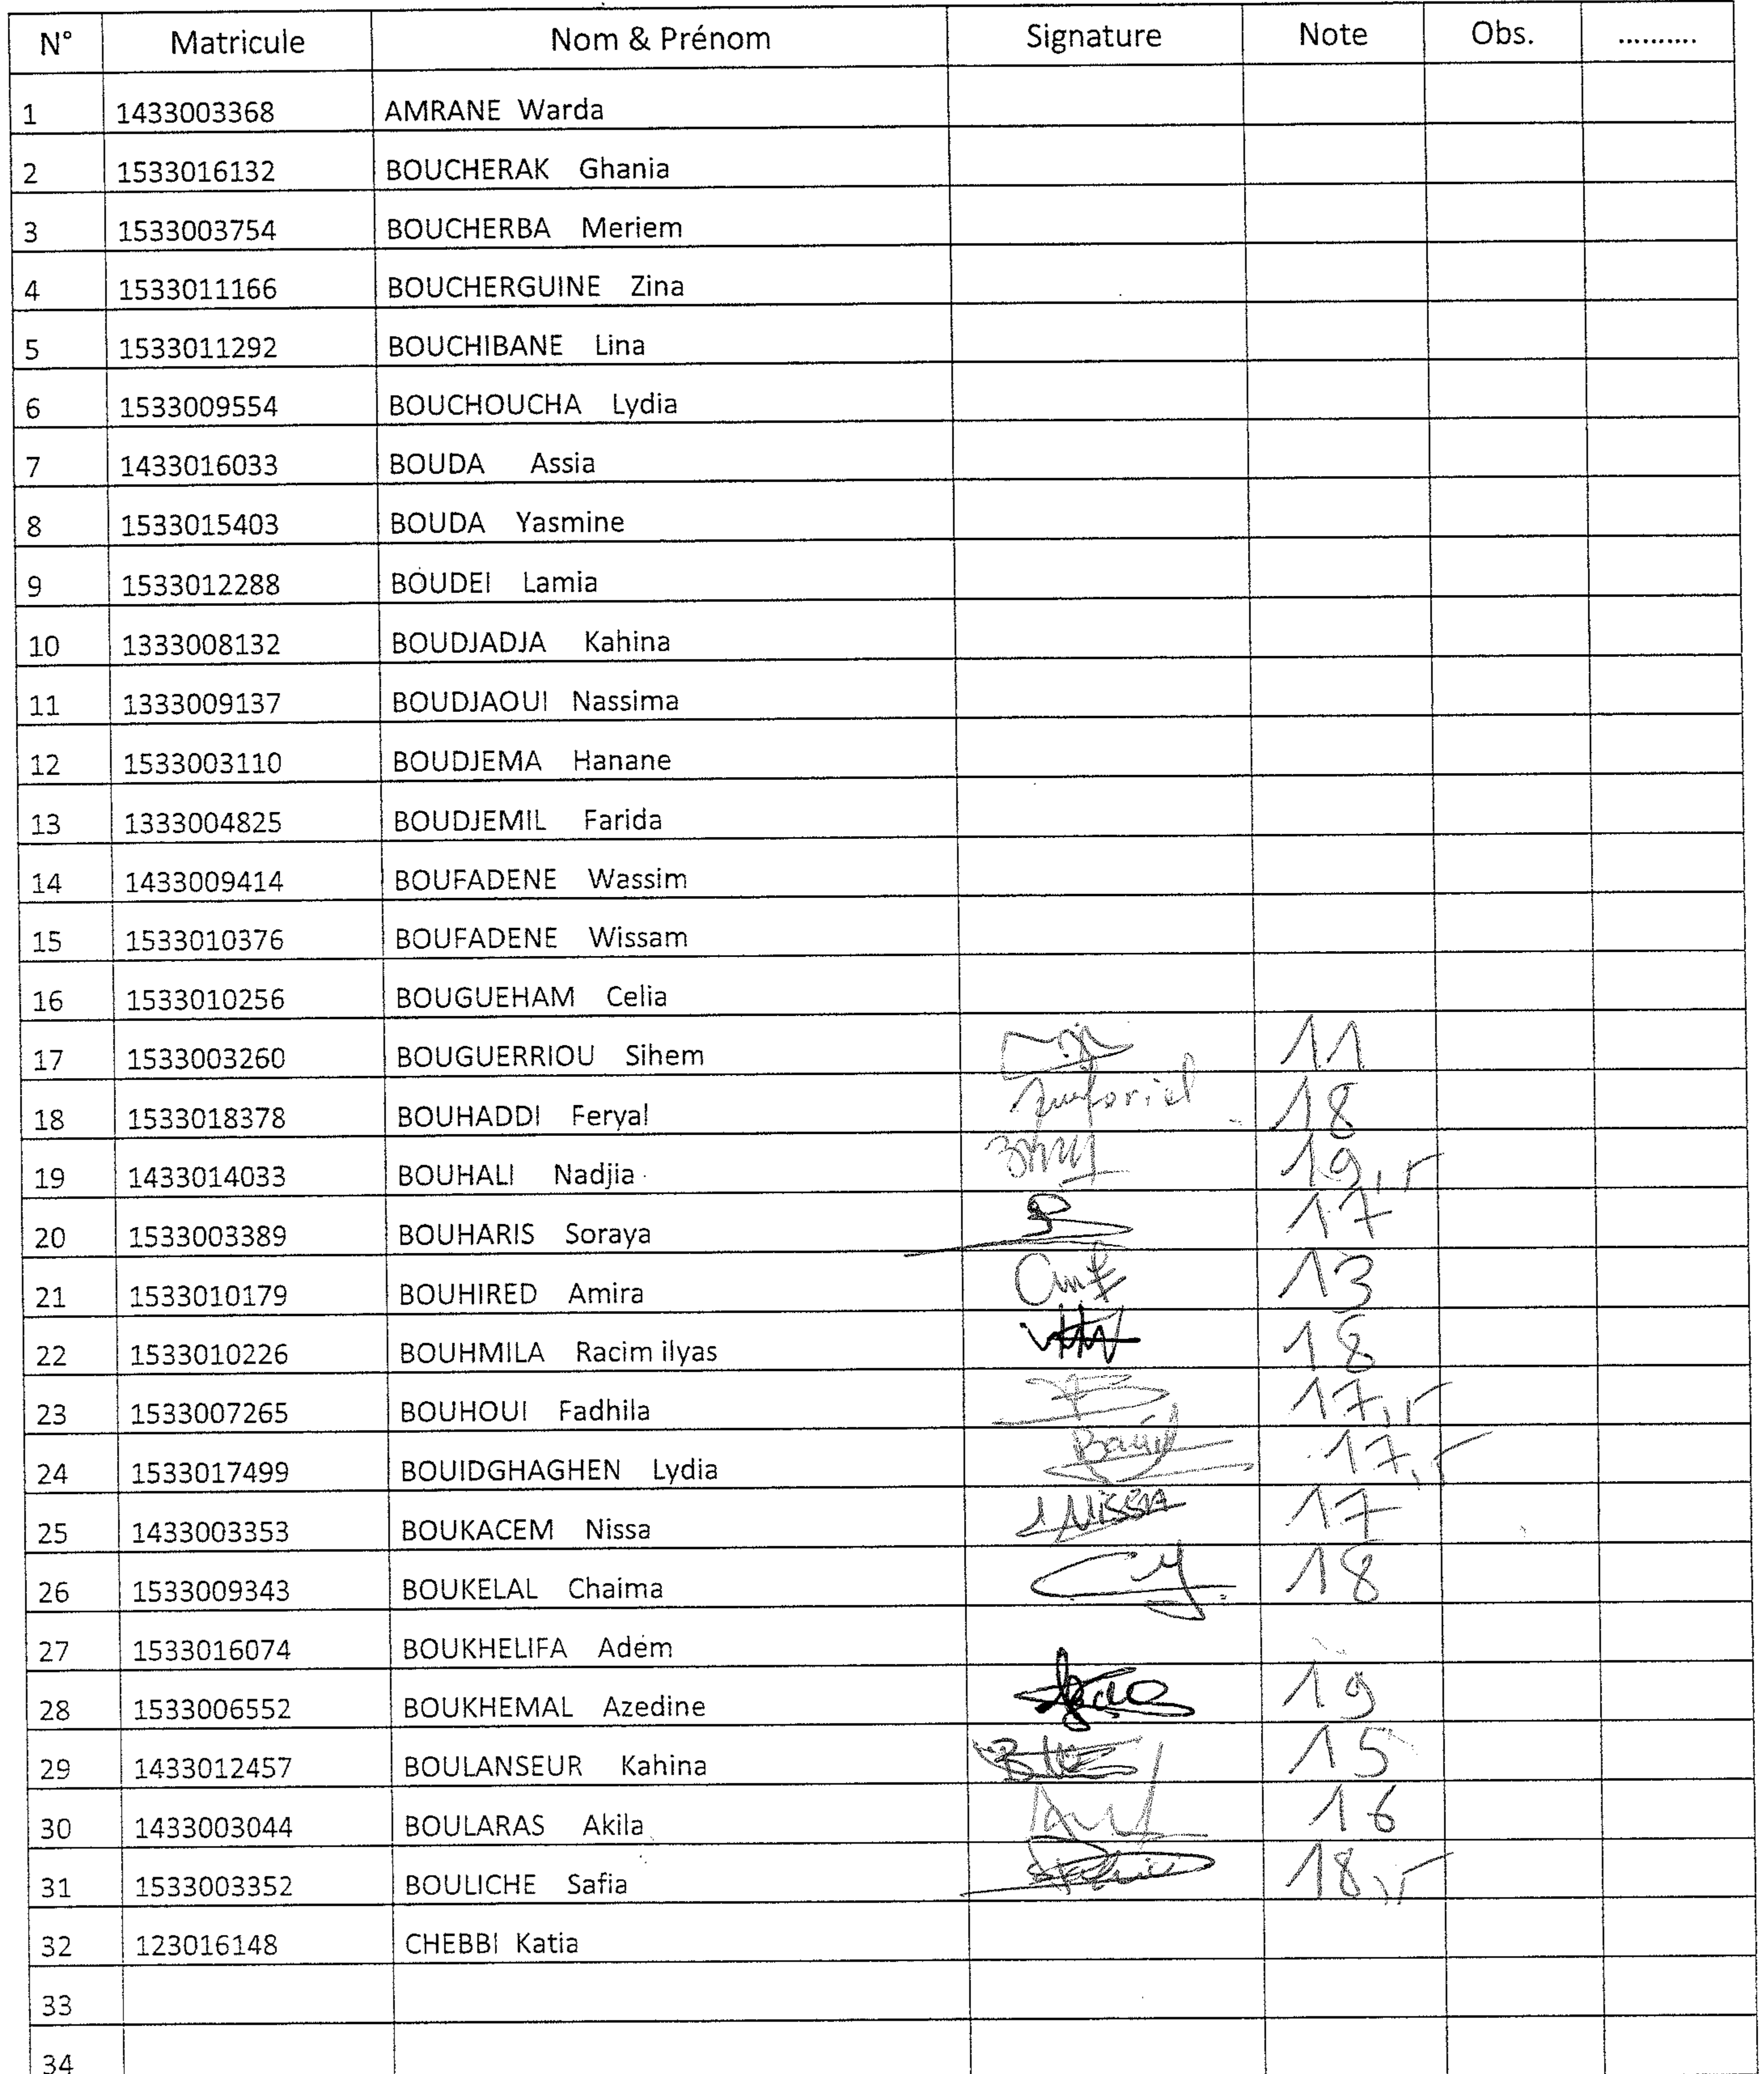 N° Matricule Nom & Prénom Signature Note Obs. ..........
1 1433003368 AMRANE Warda
2 1533016132 BOUCHERAK Ghania
3 1533003754 BOUCHERBA Meriem
4 1533011166 BOUCHERGUINE Zina
5 1533011292 BOUCHIBANE Lina
6 1533009554 BOUCHOUCHA Lydia
7 1433016033 BOUDA Assia
8 1533015403 BOUDA Yasmine
9 1533012288 BOUDEI Lamia
10 1333008132 BOUDJADJA Kahina
11 1333009137 BOUDJAOUI Nassima
12 1533003110 BOUDJEMA Hanane
13 1333004825 BOUDJEMIL Farida
14 1433009414 BOUFADENE Wassim
15 1533010376 BOUFADENE Wissam
16 1533010256 BOUGUEHAM Celia
17 1533003260 BOUGUERRIOU Sihem 11
18 1533018378 BOUHADDI Feryal 18
19 1433014033 BOUHALI Nadjia 19,5
20 1533003389 BOUHARIS Soraya 17
21 1533010179 BOUHIRED Amira 13
22 1533010226 BOUHMILA Racim ilyas 18
23 1533007265 BOUHOUI Fadhila 17,5
24 1533017499 BOUIDGHAGHEN Lydia 17,5
25 1433003353 BOUKACEM Nissa 17
26 1533009343 BOUKELAL Chaima 18
27 1533016074 BOUKHELIFA Adem
28 1533006552 BOUKHEMAL Azedine 19
29 1433012457 BOULANSEUR Kahina 15
30 1433003044 BOULARAS Akila 16
31 1533003352 BOULICHE Safia 18,5
32 123016148 CHEBBI Katia
33
34